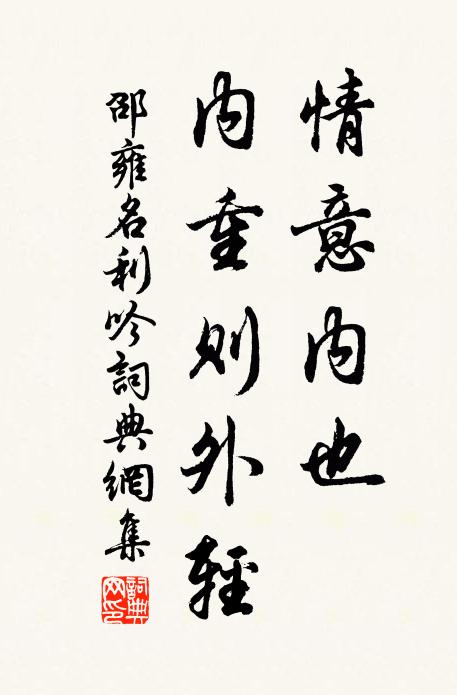 情意内也
内重则外輕
邵雍名利吟詞典網集
詞典網印